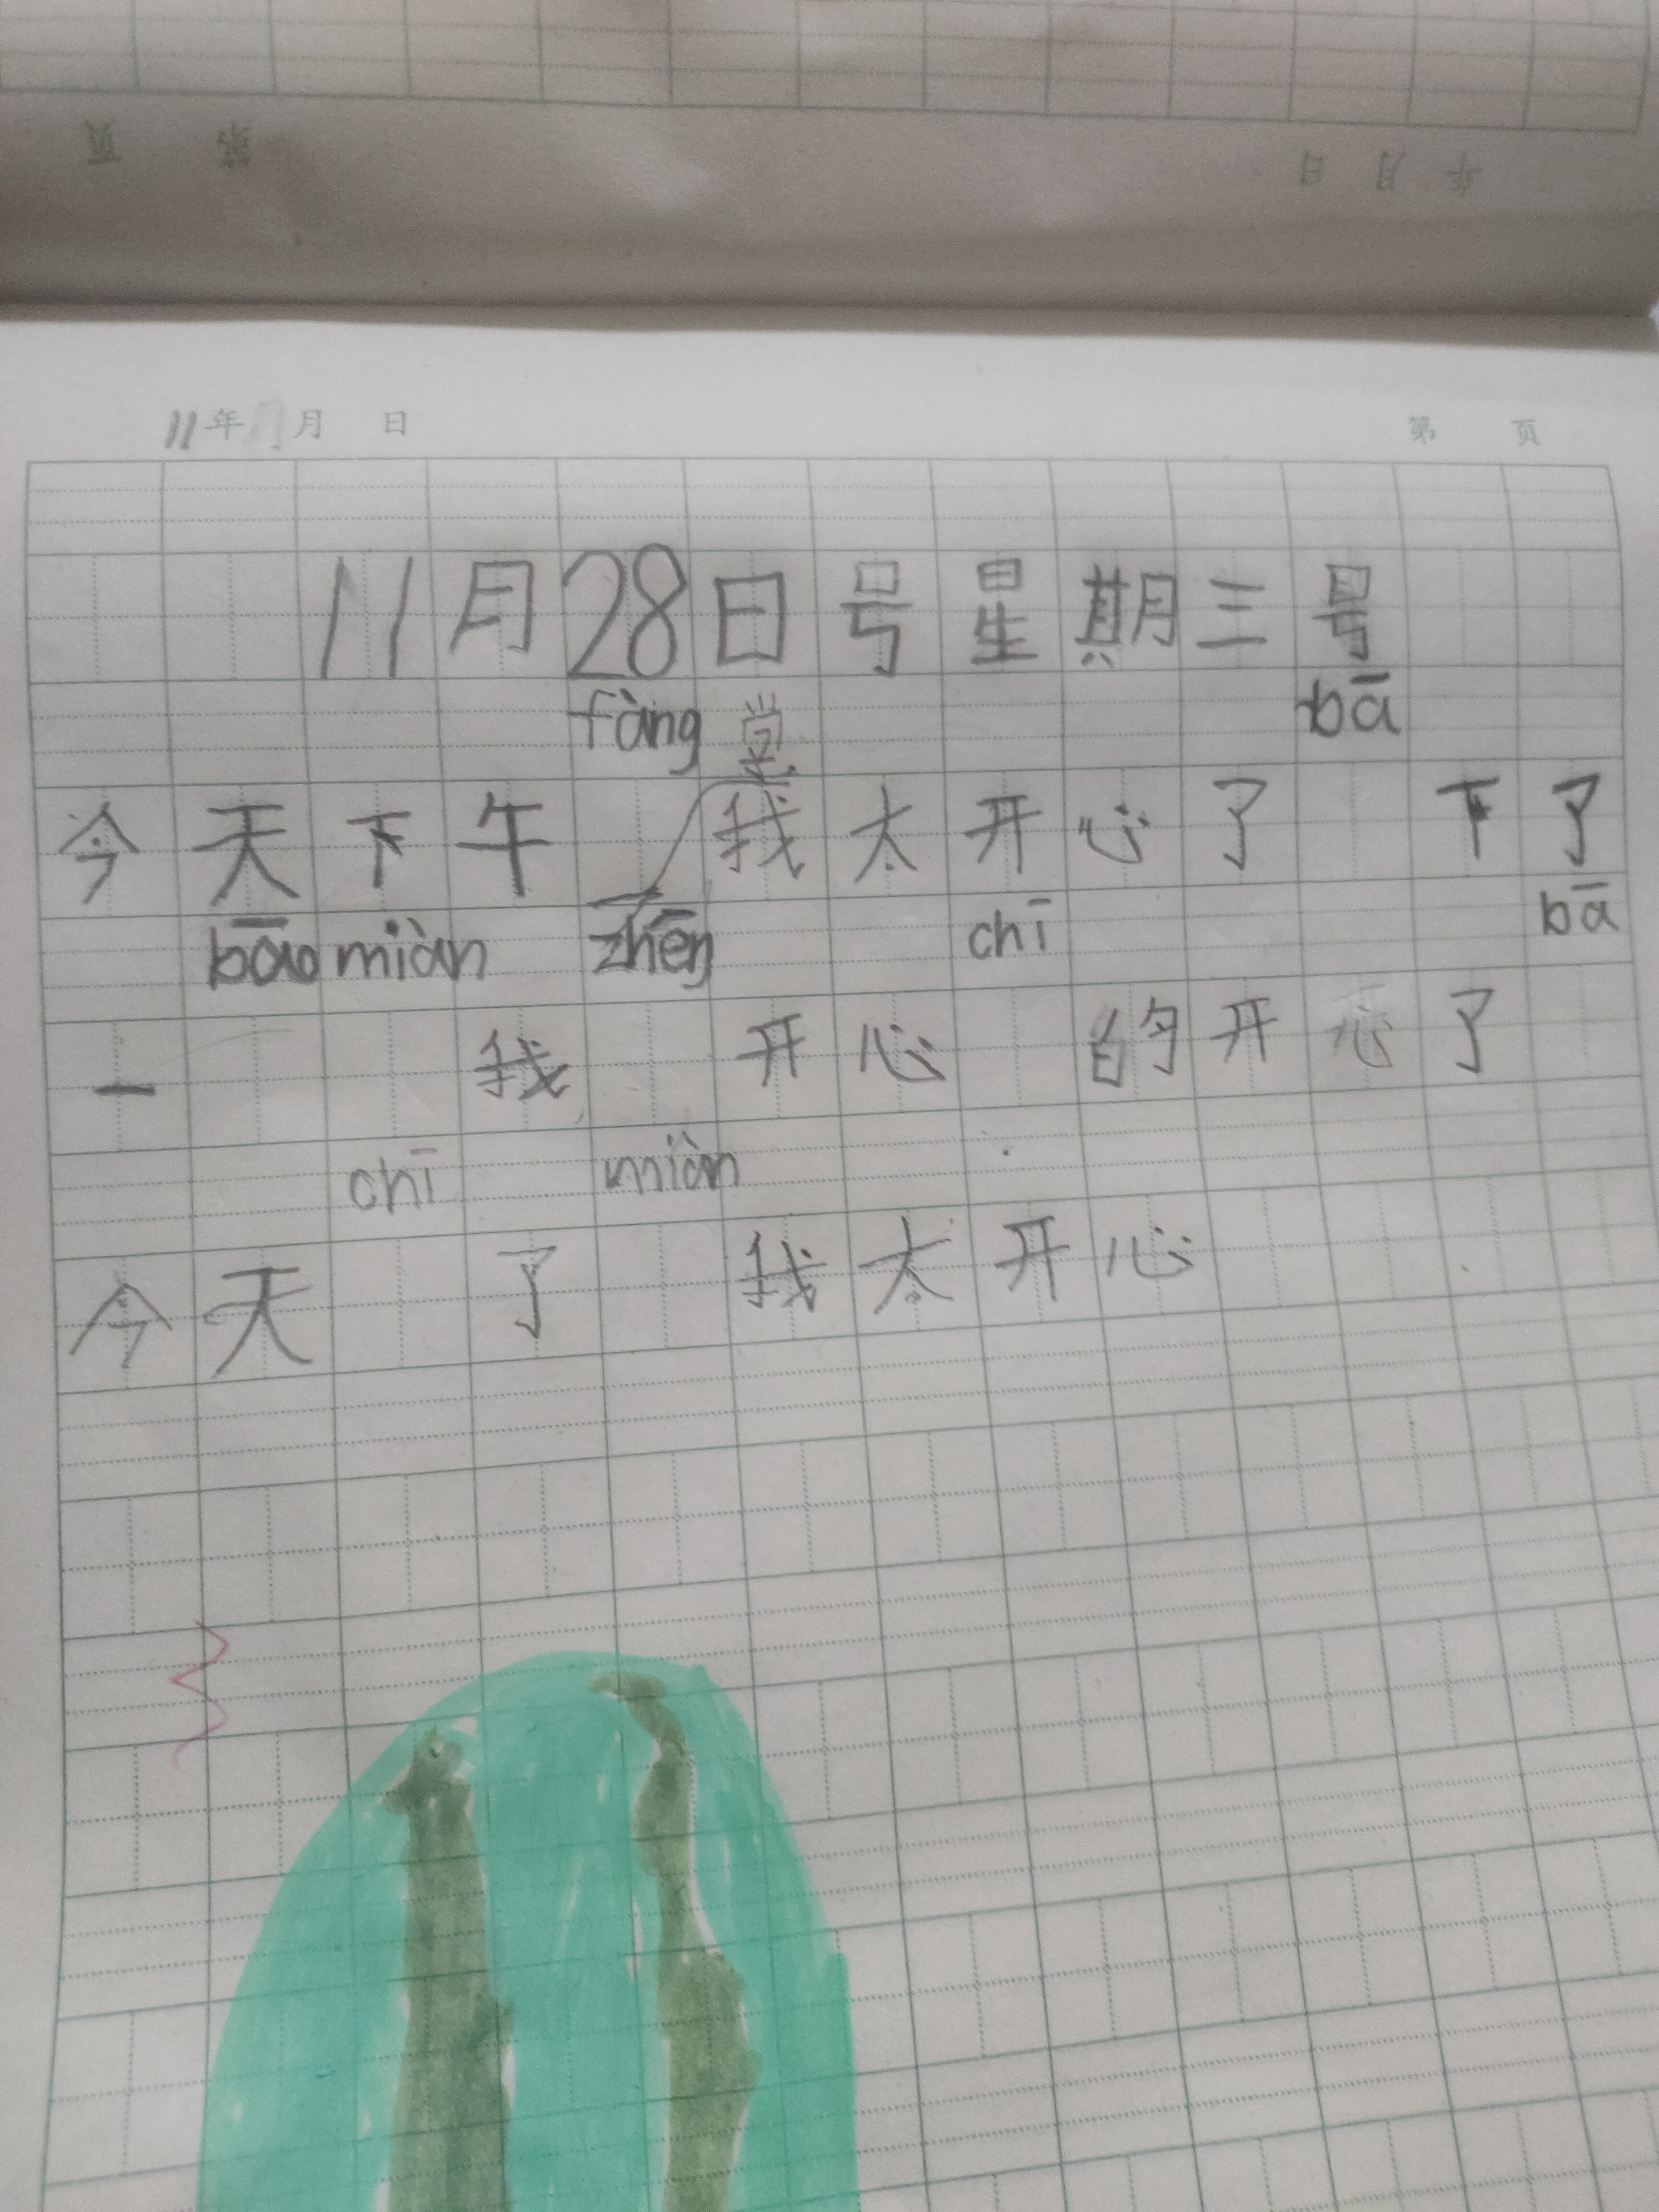 页 第 日 月 年
11年 月 日 第 页
11月28日号星期三号
fàng 堂 bā
今天下午 我太开心了 下了
bāo miàn zhēn chī bā
一 我 开心 的开心了
chī miàn
今天 了 我太开心